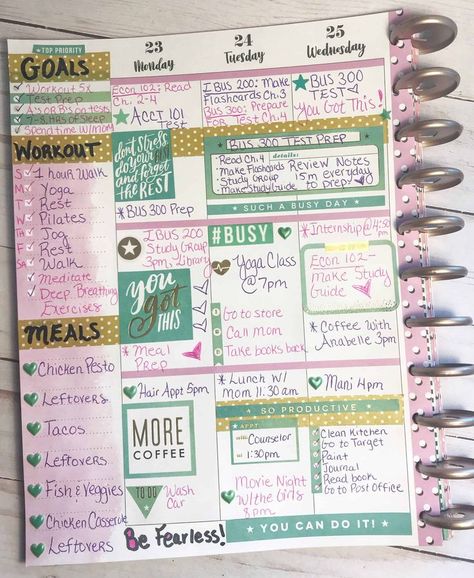 TOP PRIORITY
GOALS
Workout 5x
Test Prep
A's or B's on tests
7-8 Hrs of Sleep
Spend time w/mom
WORKOUT
S 1 hour Walk
M Yoga
T Rest
W Pilates
T Jog
F Rest
Sa Walk
Meditate
Deep Breathing
Exercises
MEALS
Chicken Pesto
Leftovers
Tacos
Leftovers
Fish & Veggies
Chicken Casserole
Leftovers
23
Monday
Econ 102: Read
Ch. 2-4
ACCT 101
Test
don't stress
do your
and forget
the REST
*BUS 300 Prep
IBUS 200
Study Group
3pm, Library
you
got
THIS
*Meal
Prep
Hair Appt 5pm
MORE
COFFEE
TO DO
Wash
Car
Be Fearless!
24
Tuesday
IBUS 200: Make
Flashcards Ch. 3
BUS 300: Prepare
FOR Test Ch. 4
BUS 300 TEST PREP
details:
Read Ch. 4
Make Flashcards
Study Group
Make Study Guide
Review Notes
15m everyday
to prep
SUCH A BUSY DAY
#BUSY
Yoga Class
@7pm
1 Go to store
2 Call Mom
3 Take books back
*Lunch w/
Mom 11:30 am
SO PRODUCTIVE
APPT
with: Counselor
at: 1:30pm
Movie Night
W/the Girls
8pm
25
Wednesday
BUS 300
TEST
You Got This!
*Internship @4:30
Econ 102-
Make Study
Guide
*Coffee With
Anabelle 3pm
Mani 4pm
Clean Kitchen
Go to Target
Paint
Journal
Read book
Go to Post Office
YOU CAN DO IT!